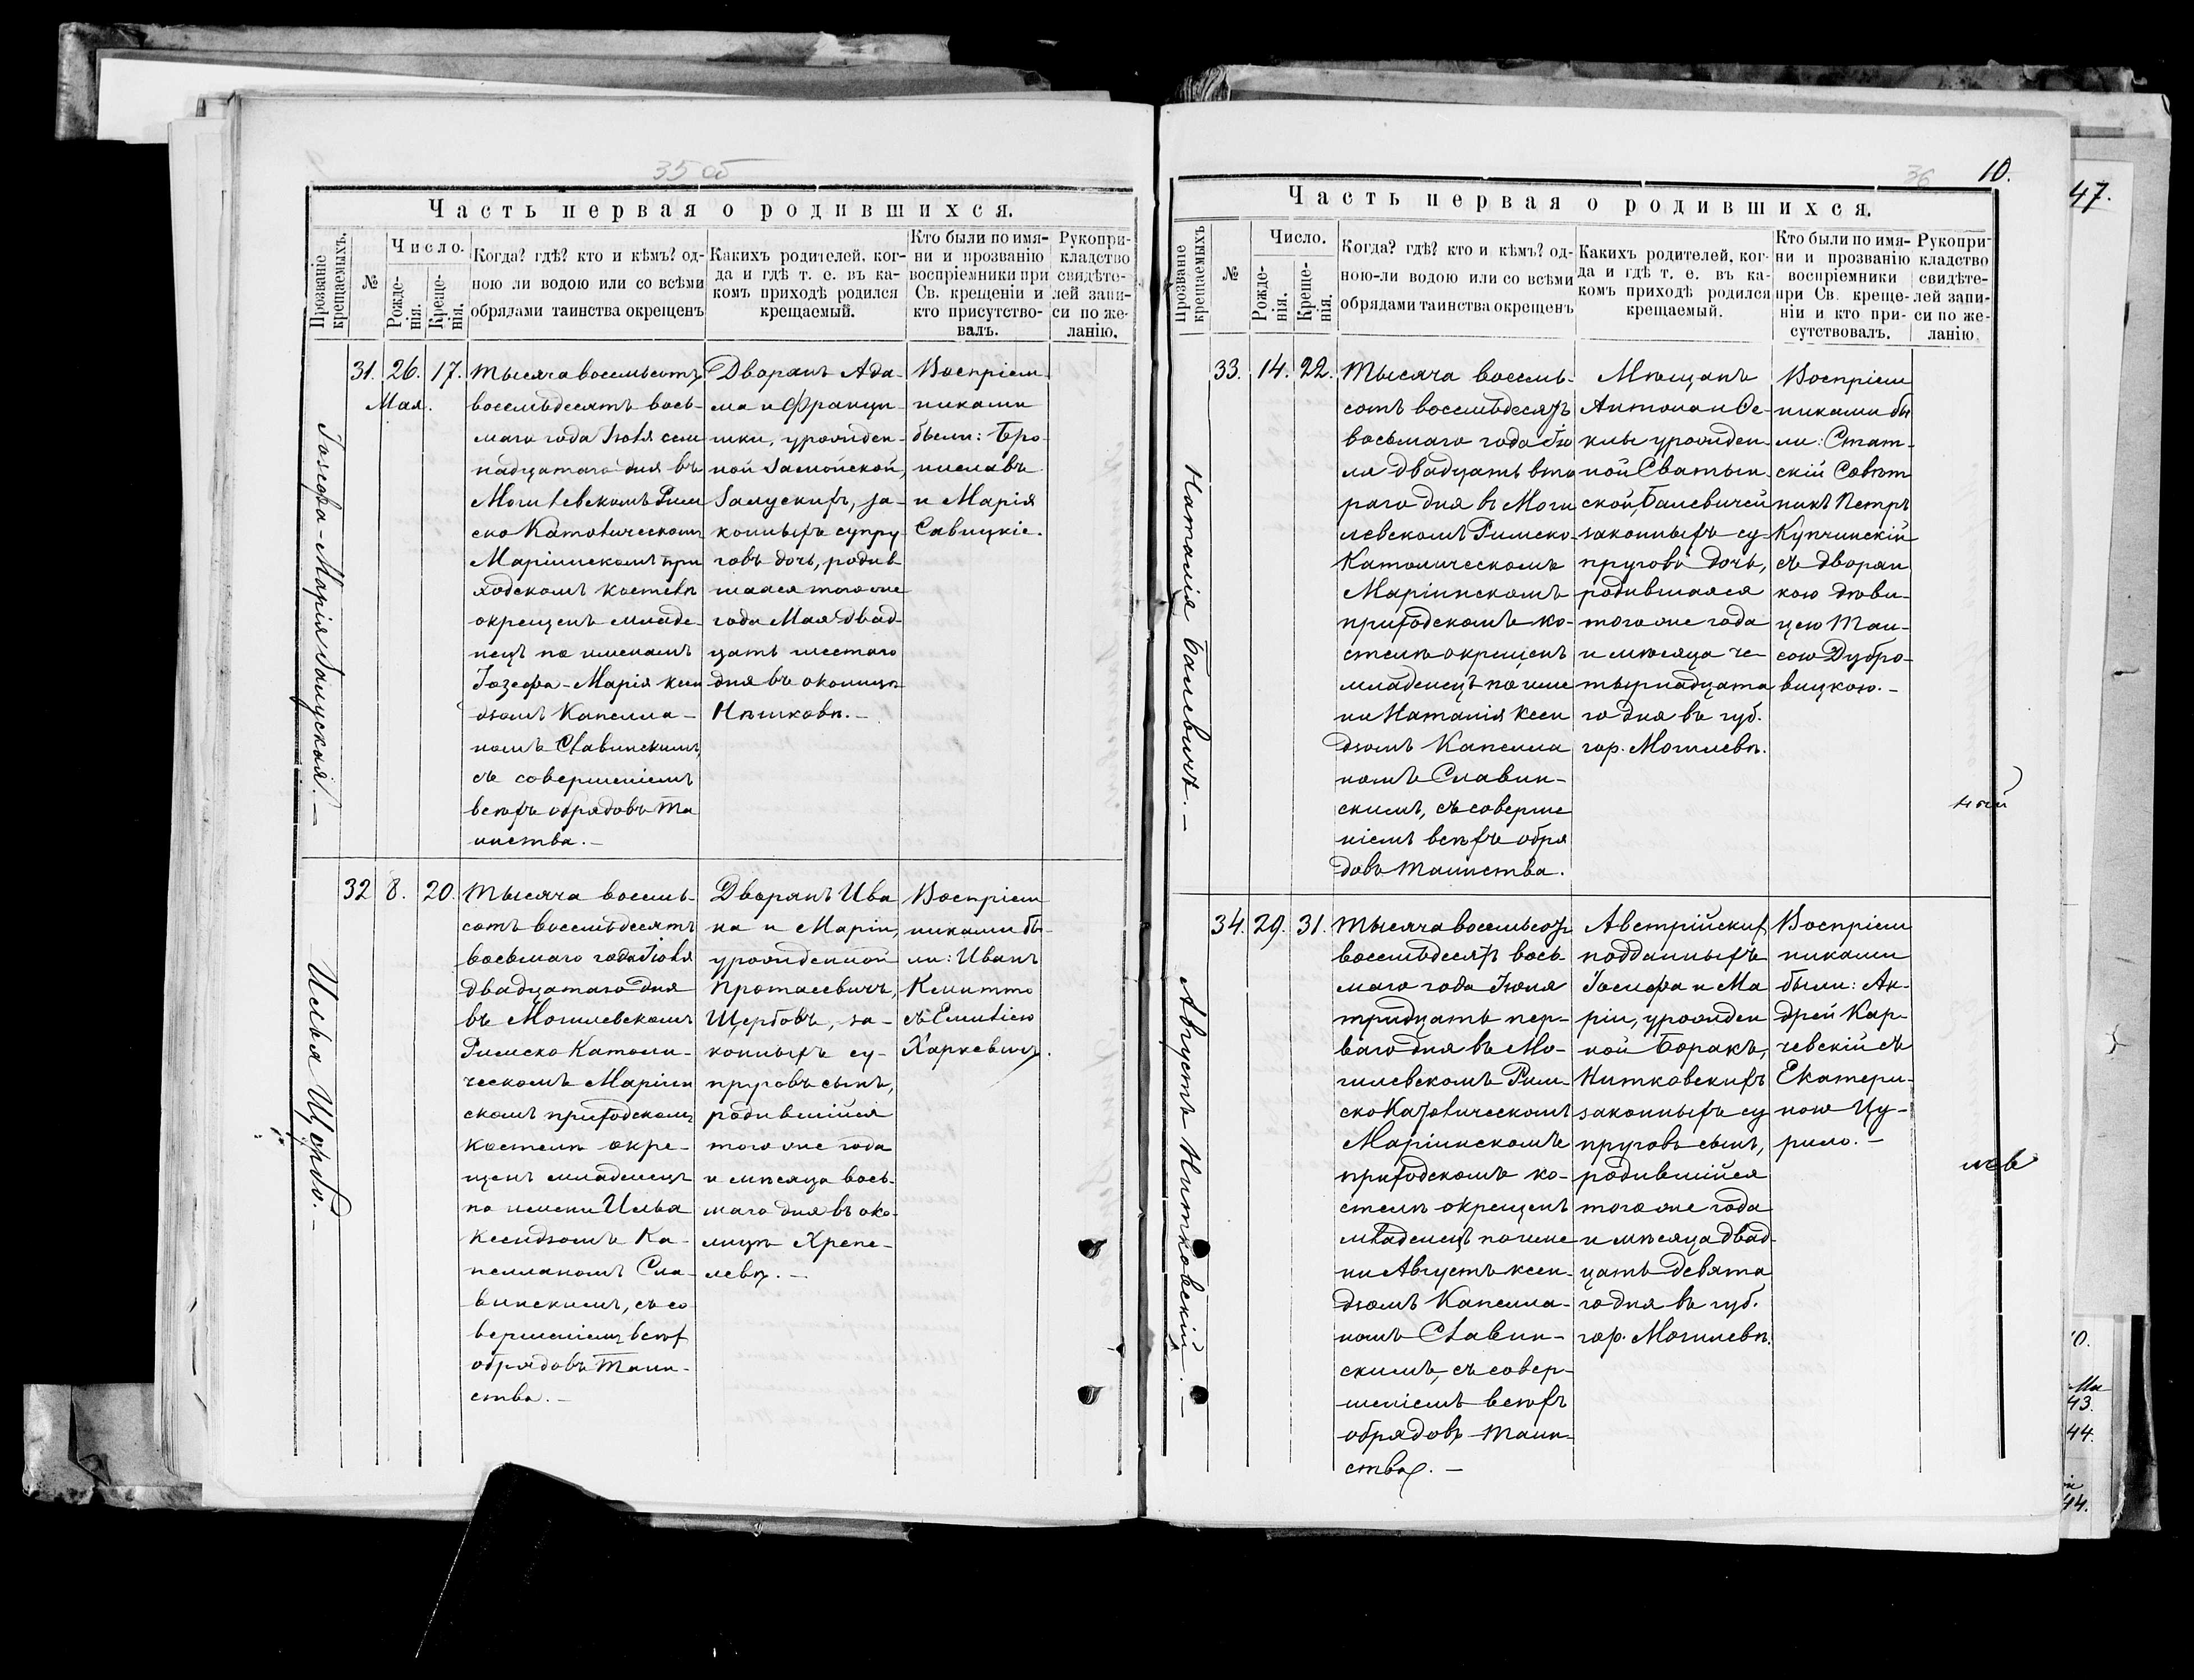 35 об
Часть первая о родившихся.
Прозваніе крещаемыхъ.
№
Число.
Рожде-
нія.
Креще-
нія.
Когда? гдѣ? кто и кѣмъ? од-
ною ли водою или со всѣми
обрядами таинства окрещенъ
Какихъ родителей, ког-
да и гдѣ т. е. въ ка-
комъ приходѣ родился
крещаемый.
Кто были по имя-
ни и прозванію
воспріемники при
Св. крещеніи и
кто присутство-
валъ.
Рукопри-
кладство
свидѣте-
лей запи-
си по же-
ланію.
Іозефа-Марія Залуская. —
31. 26. 17.
Мая.
Тысяча восемьсотъ
восемьдесятъ вось-
маго года Іюля сем
надцатаго дня въ
Могилевскомъ Рим
ско Католическомъ
Маріинскомъ при
ходскомъ костелѣ
окрещенъ младе-
нецъ по именамъ
Іозефа-Марія ксен
дзомъ Капелла-
номъ Славинскимъ,
съ совершеніемъ
всѣхъ обрядовъ Та
инства. —
Дворянъ Ада-
ма и Франци-
шки, урожден-
ной Замойской,
Залускихъ, за-
конныхъ супру
говъ дочь, родив
шаяся того же
года Мая двад-
цать шестаго
дня въ околицѣ
Нѣшковѣ. —
Воспріем-
никами
были: Бро-
ниславъ
и Марія
Савицкіе.
Илья Щербо. —
32 8. 20.
Тысяча восемь-
сотъ восемьдесятъ
восьмаго года Іюля
двадцатаго дня
въ Могилевскомъ
Римско Католи-
ческомъ Маріин
скомъ приходскомъ
костелѣ окре-
щенъ младенецъ
по имени Илья
Ксендзомъ Ка-
пелланомъ Сла-
винскимъ, съ со
вершеніемъ всѣх
обрядовъ Таин-
ства. —
Дворянъ Ива
на и Маріи,
урожденной
Протасевичъ,
Щербовъ, за-
конныхъ су-
пруговъ сынъ,
родившійся
того же года
и мѣсяца вось-
маго дня въ око-
лицѣ Хрепе-
левѣ. —
Воспріем
никами бы-
ли: Иванъ
Кмитто
съ Емиліею
Харкевичъ.
36
10.
Часть первая о родившихся.
Прозваніе крещаемыхъ
№
Число.
Рожде-
нія.
Креще-
нія.
Когда? гдѣ? кто и кѣмъ? од-
ною-ли водою или со всѣми
обрядами таинства окрещенъ
Какихъ родителей, ког-
да и гдѣ т. е. въ ка-
комъ приходѣ родился
крещаемый.
Кто были по имя-
ни и прозванію
воспріемники
при Св. креще-
ніи и кто при-
сутствовалъ.
Рукопри-
кладство
свидѣте-
лей запи-
си по же-
ланію.
Наталія Балевичъ. —
33. 14. 22.
Тысяча восемь-
сотъ восемьдесятъ
восьмаго года Ію
ля двадцать вто
раго дня въ Моги
левскомъ Римско-
Католическомъ
Маріинскомъ
приходскомъ ко-
стелѣ окрещенъ
младенецъ по име
ни Наталія Ксен
дзомъ Капелла
номъ Славин-
скимъ, съ соверше
ніемъ всѣхъ обря
довъ Таинства.
Мѣщанъ
Антона и Се-
клы урожден-
ной Сватын-
ской, Балевичей
законныхъ су-
пруговъ дочь,
родившаяся
того же года
и мѣсяца че-
тырнадцата
го дня въ губ.
гор. Могилевѣ.
Воспріем
никами бы
ли: Стат-
скій Совѣт
никъ Петръ
Купчинскій
съ дворян
кою дѣви-
цею Таи-
сою Дубро-
вицкою. —
Августъ Нитковскій. —
34. 29. 31.
Тысяча восемьсотъ
восемьдесятъ вось
маго года Іюля
тридцать пер-
ваго дня въ Мо-
гилевскомъ Рим-
ско Католическомъ
Маріинскомъ
приходскомъ ко-
стелѣ окрещенъ
младенецъ по име
ни Августъ ксен-
дзомъ Капелла-
номъ Славин-
скимъ, съ совер-
шеніемъ всѣхъ
обрядовъ Таин-
ства. —
Австрійских
подданныхъ
Іосифа и Ма
ріи, урожден
ной Боракъ,
Нитковскихъ
законныхъ су
пруговъ сынъ,
родившійся
того же года
и мѣсяца двад-
цать девята
го дня въ губ.
гор. Могилевѣ.
Воспріем
никами
были: Ан-
дрей Кар-
чевскій съ
Екатери-
ною Цу-
рило. —
47.
43.
44.
44.